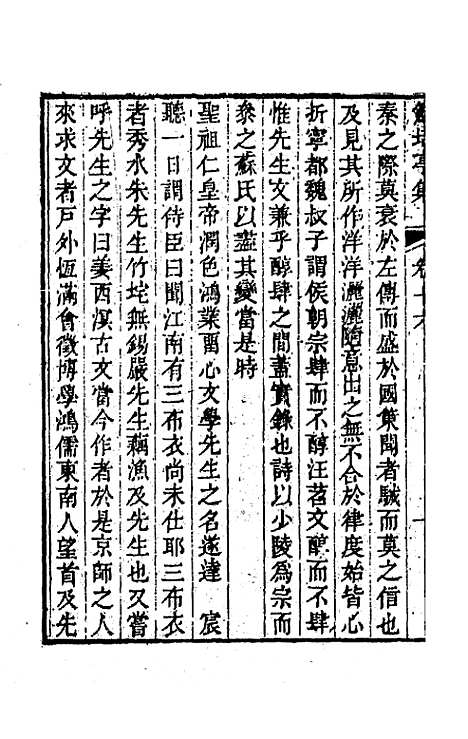 鮚埼亭集 卷十六 一
秦之際莫衰於左傳而盛於國策聞者駴而莫之信也
及見其所作洋洋灑灑隨意出之無不合於律度始皆心
折寧都魏叔子謂侯朝宗肆而不醇汪苕文醇而不肆
惟先生文兼乎醇肆之間蓋實錄也詩以少陵爲宗而
參之蘇氏以盡其變當是時
聖祖仁皇帝潤色鴻業畱心文學先生之名遂達 宸
聽一日謂侍臣曰聞江南有三布衣尚未仕耶三布衣
者秀水朱先生竹垞無錫嚴先生藕漁及先生也又嘗
呼先生之字曰姜西溟古文當今作者於是京師之人
來求文者戸外恆滿會徵博學鴻儒東南人望首及先